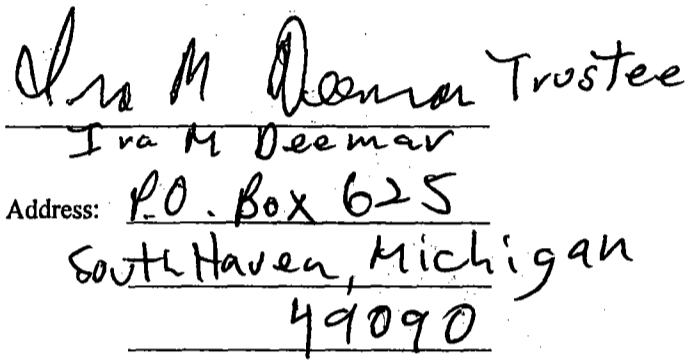 Ira M Deemar Trustee
Ira M Deemar
Address: P.O. Box 625
South Haven, Michigan
49090